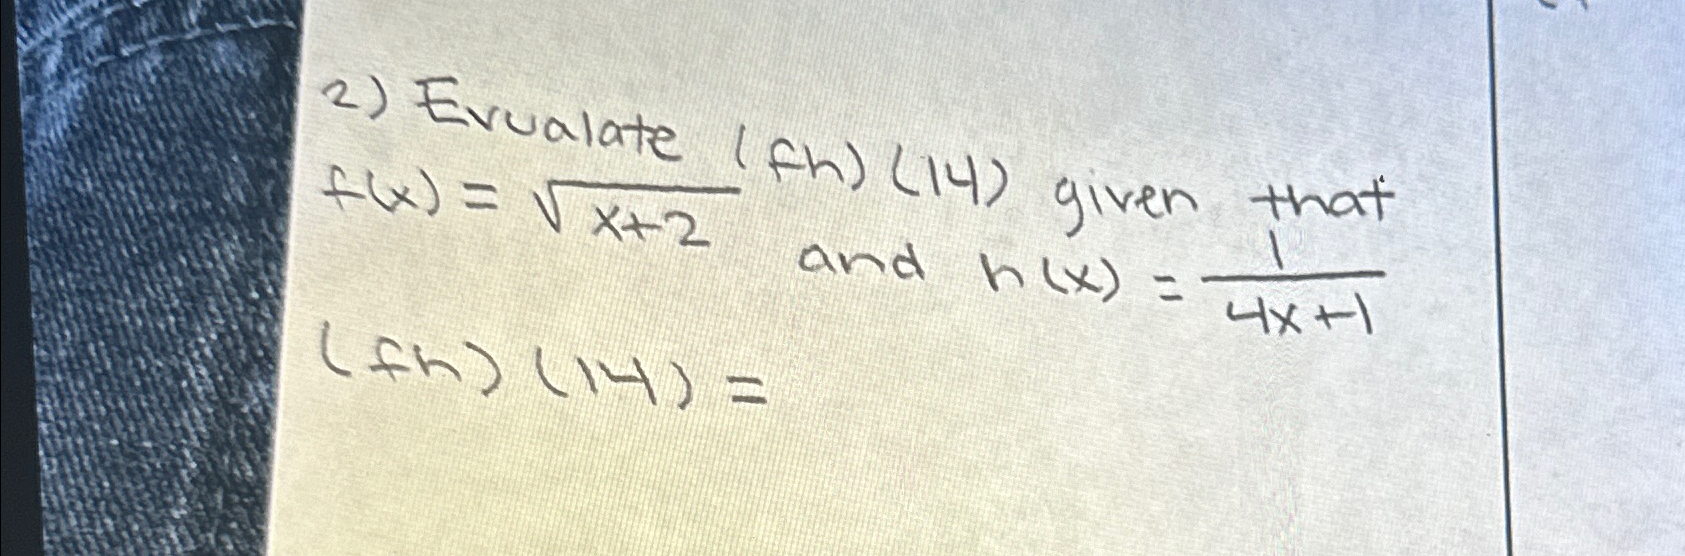 2) Evualate (fh)(14) given that
f(x) = √x+2 and h(x) = 1/4x+1
(fh)(14) =